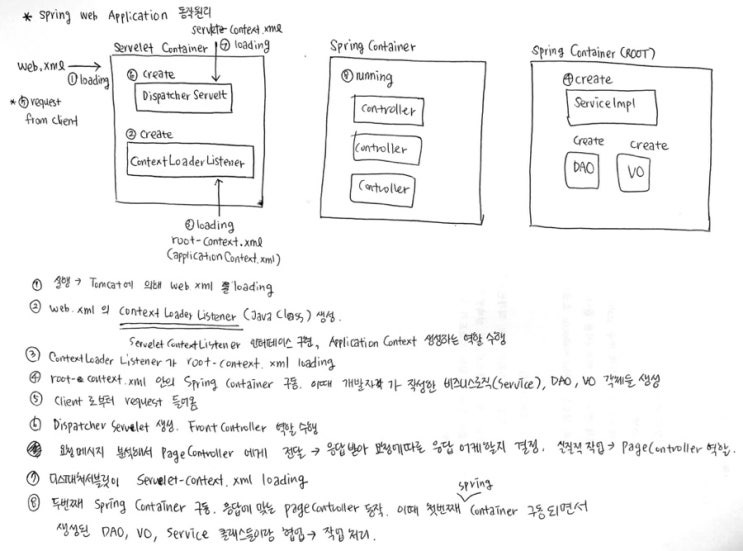 * Spring Web Application 동작원리
servlet-context.xml
⑦ loading
Servelet Container
web.xml
① loading
* ⑤ request
from client
⑥ create
Dispatcher Servelt
② create
ContextLoaderListener
③ loading
root-context.xml
(applicationContext.xml)
Spring Container
⑧ running
Controller
Controller
Controller
Spring Container (ROOT)
④ create
ServiceImpl
Create
Create
DAO
VO
① 실행 → Tomcat에 의해 web.xml loading
② web.xml 의 Context Loader Listener (Java Class) 생성.
Servelet ContextListener 인터페이스 구현, Application Context 생성하는 역할 수행
③ ContextLoader Listener가 root-context.xml loading
④ root-context.xml 안의 Spring Container 구동. 이때 개발자가 작성한 비즈니스로직(Service), DAO, VO 객체들 생성
⑤ Client로부터 request 들어옴
⑥ Dispatcher Servelet 생성. FrontController 역할 수행
요청메시지 분석해서 PageController 에게 전달 → 응답받아 요청에따른 응답 어케할지 결정. 실질적 작업 → PageController 역할.
⑦ 디스패쳐서블릿이 Servelet-context.xml loading
⑧ 두번째 Spring Container 구동. 응답에 맞는 PageController 동작. 이때 첫번째 spring Container 구동되면서
생성된 DAO, VO, Service 클래스들이랑 협업 → 작업 처리.